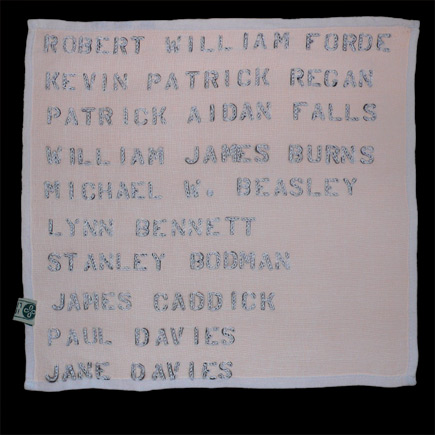 ROBERT WILLIAM FORDE
KEVIN PATRICK REGAN
PATRICK AIDAN FALLS
WILLIAM JAMES BURNS
MICHAEL W. BEASLEY
LYNN BENNETT
STANLEY BODMAN
JAMES CADDICK
PAUL DAVIES
JANE DAVIES